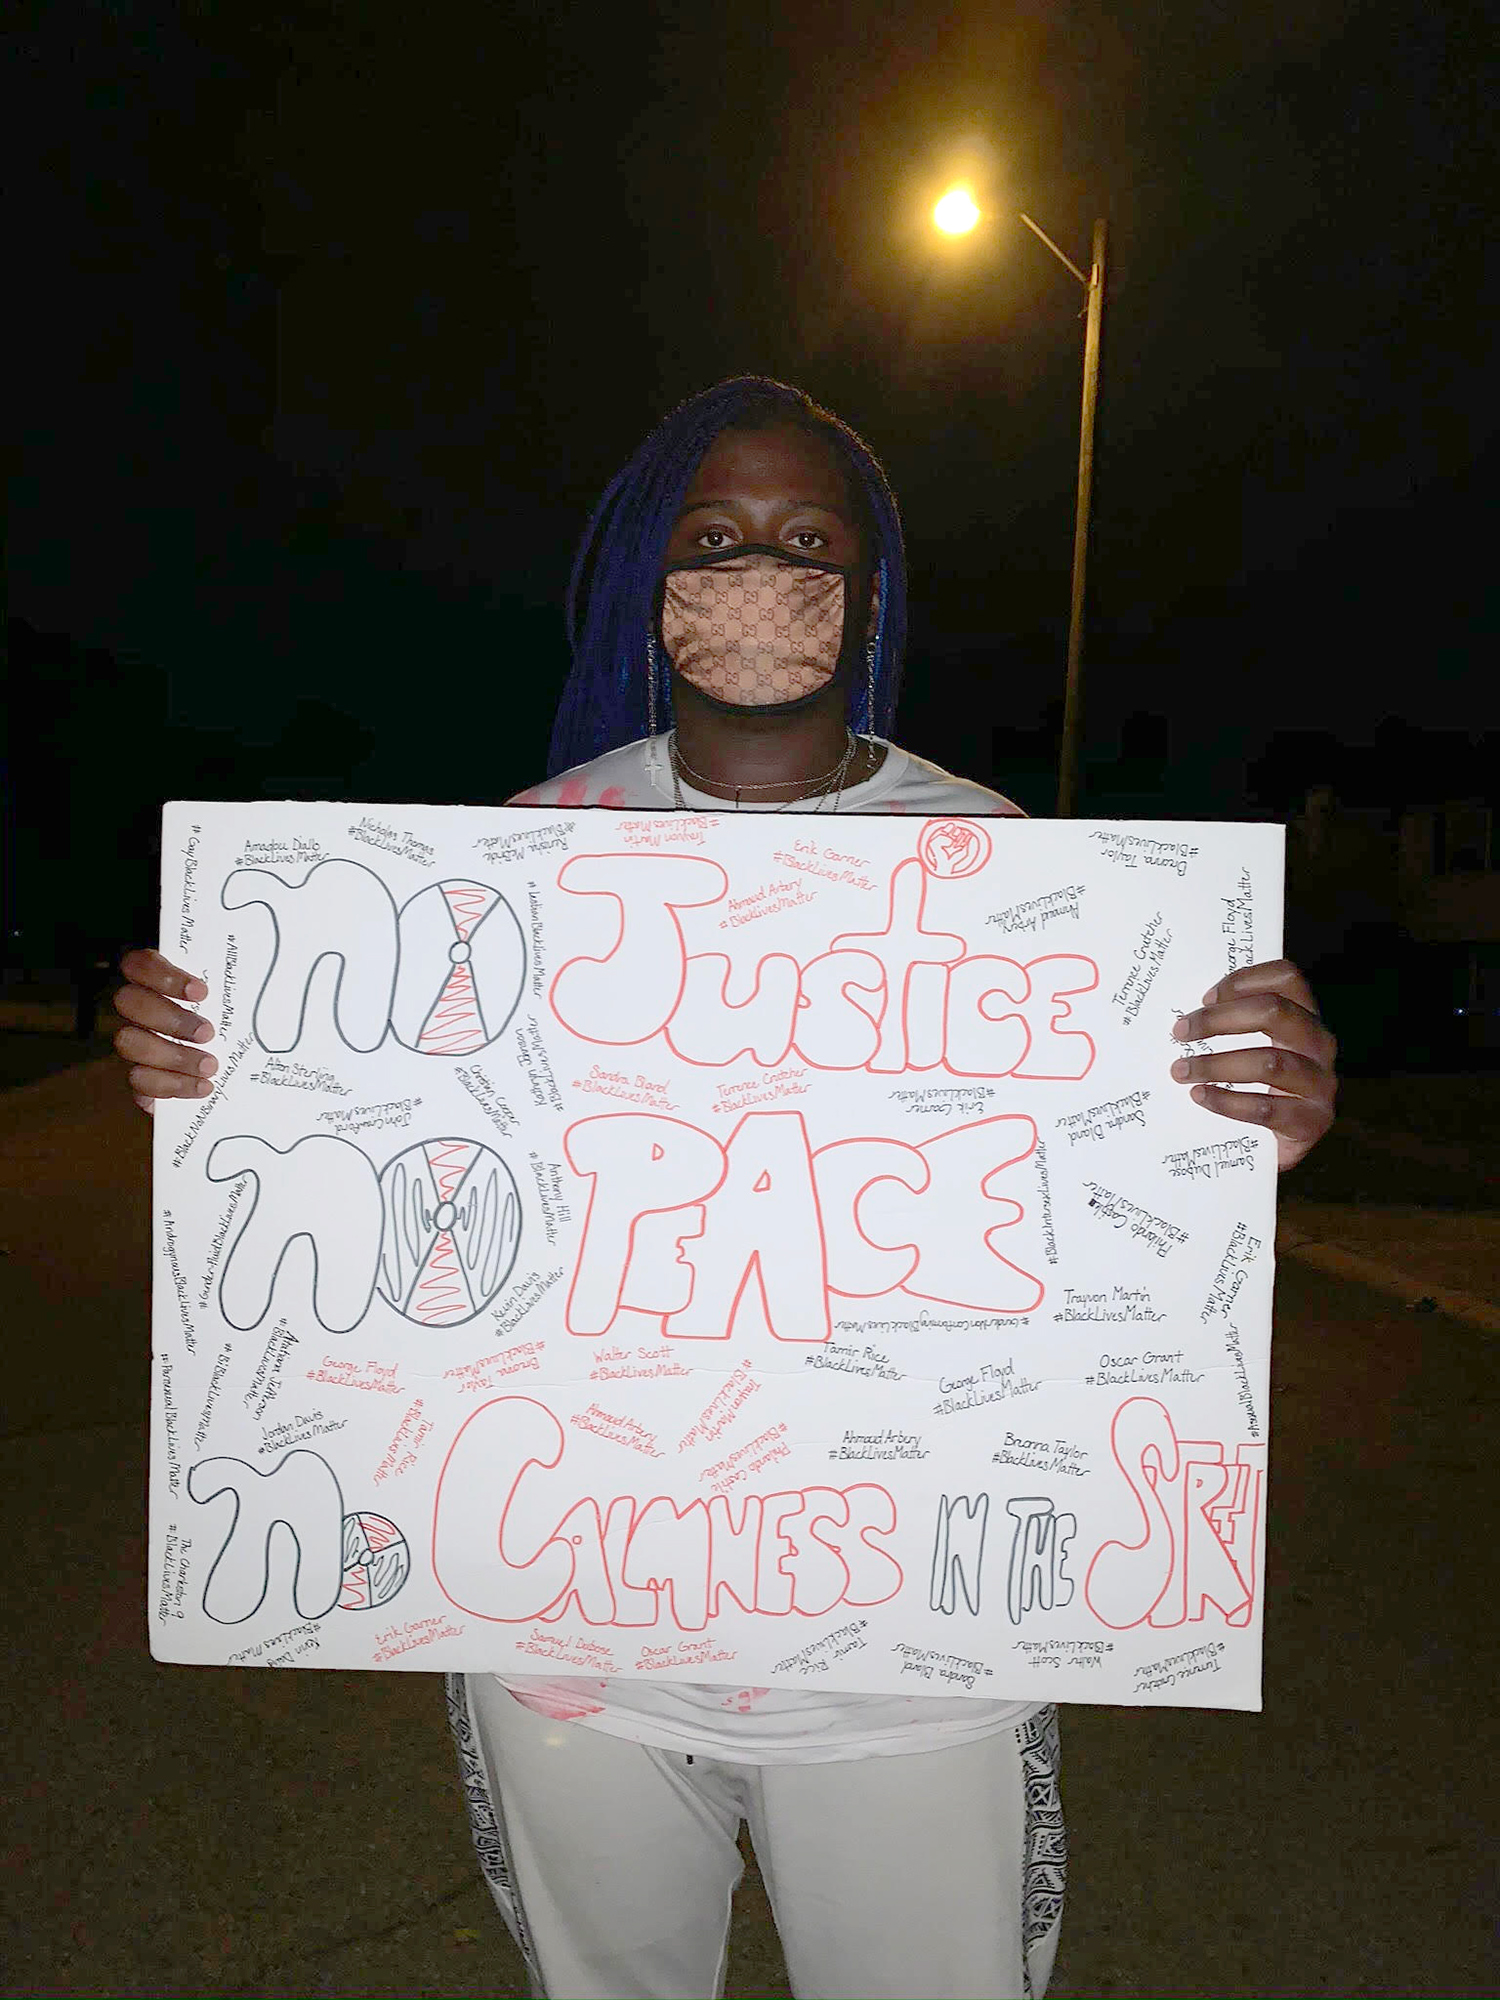 #GayBlackLivesMatter
Amadou Diallo
#BlackLivesMatter
Nicholas Thomas
#BlackLivesMatter
Renisha McBride
#BlackLivesMatter
Trayvon Martin
#BlackLivesMatter
Erik Garner
#BlackLivesMatter
Ahmaud Arbery
#BlackLivesMatter
Breonna Taylor
#BlackLivesMatter
Ahmaud Arbery
#BlackLivesMatter
Terrence Crutcher
#BlackLivesMatter
George Floyd
BlackLivesMatter
NO JUSTICE
#AllBlackLivesMatter
#LesbianBlackLivesMatter
#BlackNoNBinaryLivesMatter
Alton Sterling
#BlackLivesMatter
John Crawford
#BlackLivesMatter
#BlackLivesMatter
Kathryn Johnston
#BlackLivesMatter
Sandra Bland
#BlackLivesMatter
Terrence Crutcher
#BlackLivesMatter
Erik Garner
#BlackLivesMatter
Sandra Bland
#BlackLivesMatter
Samuel Dubose
#BlackLivesMatter
NO PEACE
Anthony Hill
#BlackLivesMatter
#BlackIntersexLivesMatter
Philando Castile
#BlackLivesMatter
Erik Garner
#BlackLivesMatter
#AndrogynousBlackLivesMatter
#Gender-fluidBlackLivesMatter
Kevin Davis
#BlackLivesMatter
Trayvon Martin
#BlackLivesMatter
#GenderNonConformingBlackLivesMatter
#PansexualBlackLivesMatter
#BiBlackLivesMatter
Atatiana Jefferson
#BlackLivesMatter
George Floyd
#BlackLivesMatter
Breonna Taylor
#BlackLivesMatter
Walter Scott
#BlackLivesMatter
Tamir Rice
#BlackLivesMatter
George Floyd
#BlackLivesMatter
Oscar Grant
#BlackLivesMatter
#AsexualBlackLivesMatter
Jordan Davis
#BlackLivesMatter
Tamir Rice
#BlackLivesMatter
Ahmaud Arbery
#BlackLivesMatter
Trayvon Martin
#BlackLivesMatter
Philando Castile
#BlackLivesMatter
Ahmaud Arbury
#BlackLivesMatter
Breonna Taylor
#BlackLivesMatter
NO CALMNESS IN THE STREET
The Charleston 9
#BlackLivesMatter
Kevin Davis
#BlackLivesMatter
Erik Garner
#BlackLivesMatter
Samuel Dubose
#BlackLivesMatter
Oscar Grant
#BlackLivesMatter
Tamir Rice
#BlackLivesMatter
Sandra Bland
#BlackLivesMatter
Walter Scott
#BlackLivesMatter
Terrence Crutcher
#BlackLivesMatter